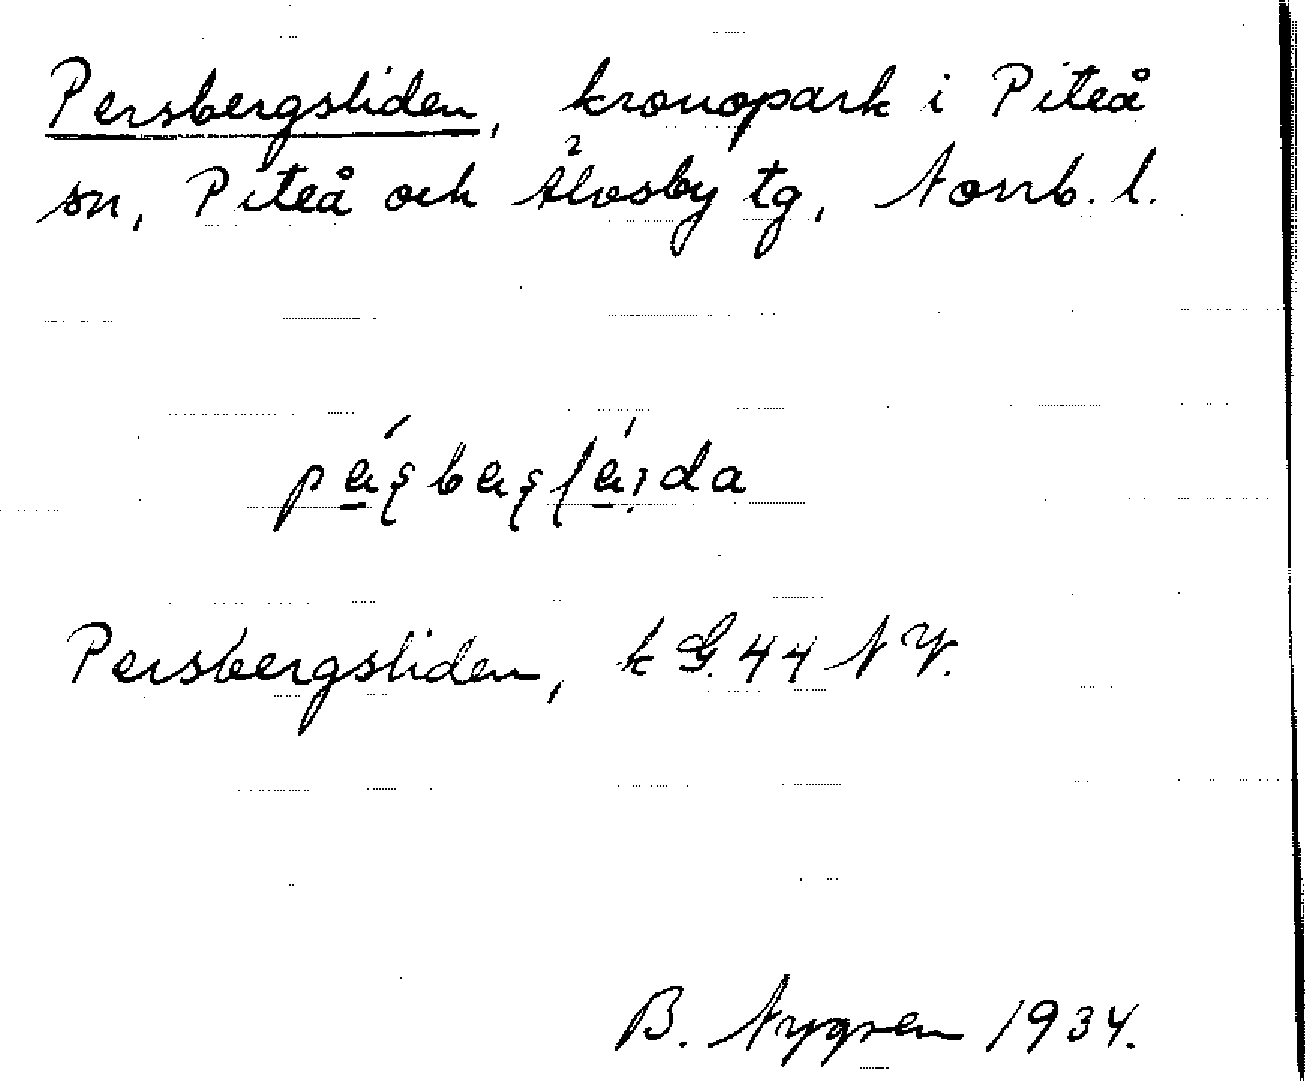 Persbergsliden, kronopark i Piteå
sn, Piteå och Älvsby tg, Norrb. l.
Persbergsliden, k G. 44 NV.
B. Nygren 1934.